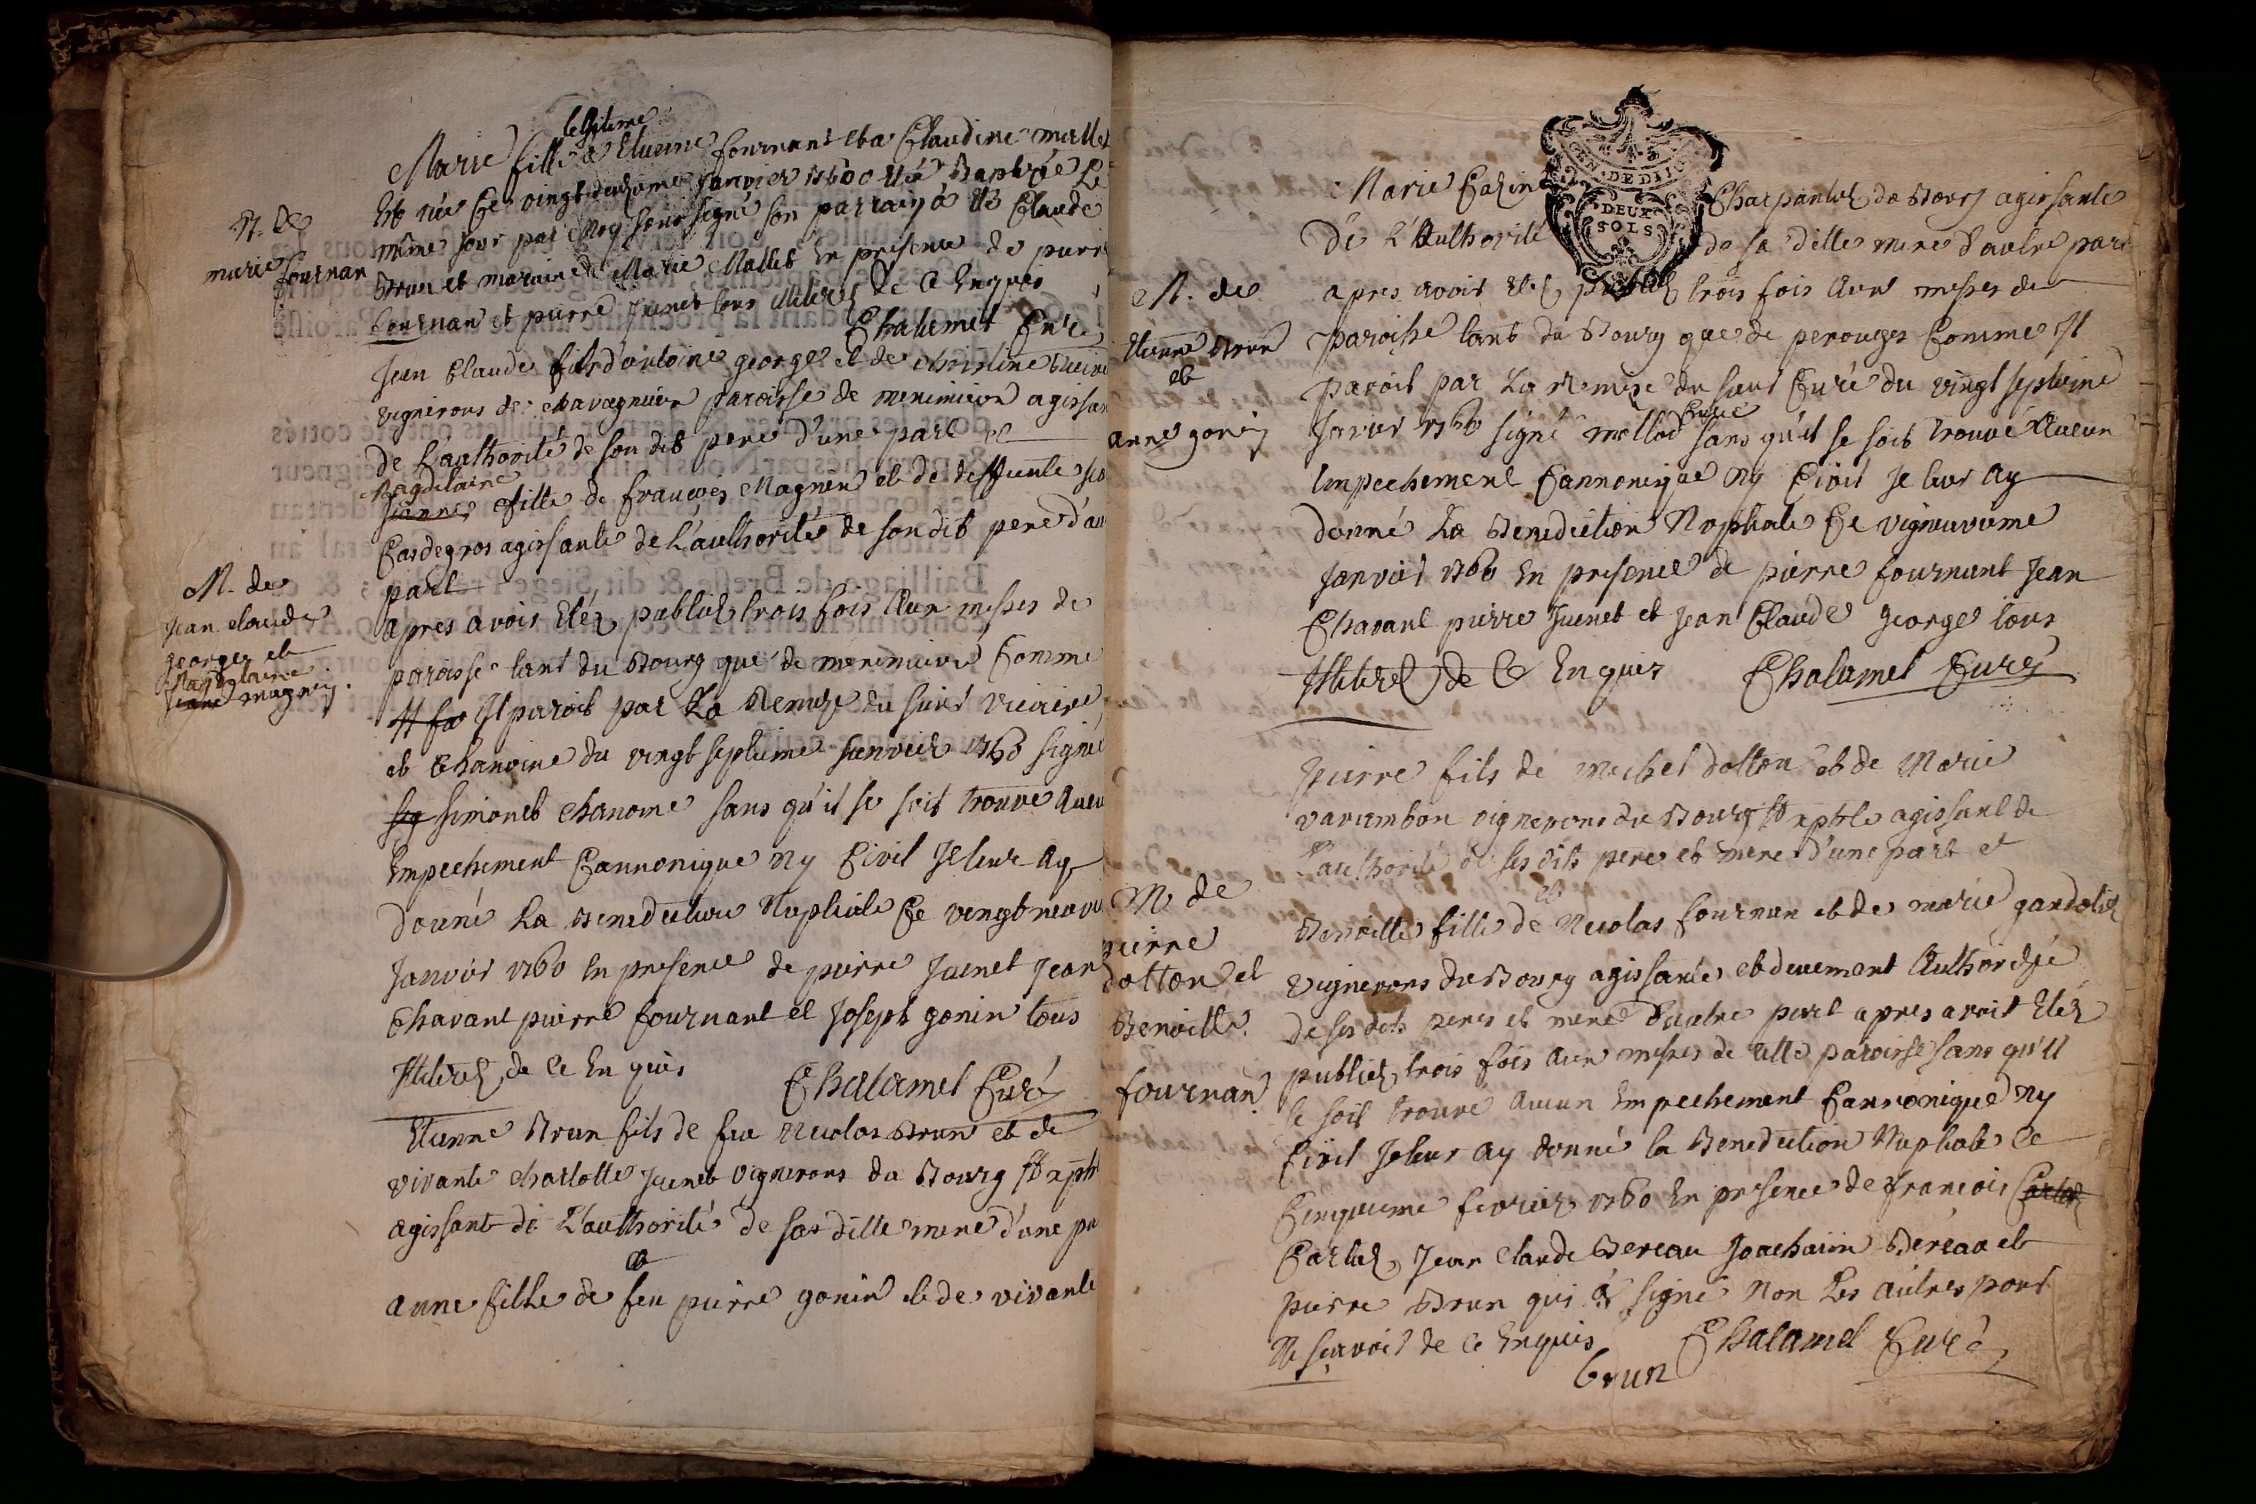 B. de
marie fournan
legitime
Marie fille a Etienne fournant et a Claudine mallet
Est née Ce vingt deuxieme Janvier 1760 et a été Baptizée Le
même jour par Moy soussigné son parrain a été Claude
Brun et maraine Marie Mallet En presence de pierre
fournan et pierre Juenet tous illiterez de ce Enquis
Chalamel Curé
M. de
jean claude
george et
Magdelaine
jeane magnin.
Jean Claude fils d'antoine george et de christine
vignerons de chavagnieu paroisse de meximieux agissan
de L'authorité de son dit pere d'une part et
Magdelaine
jeanne fille de françois Magnin et de deffunte
Casdegros agissante de L'authorité de son dit pere d'au
part
apres avoir Etéz publiez trois fois Aux messes de
paroisse tant du Bourg que de meximieux Comme
Il paroit par La Remise du sieur vicaire
et Chanoine du vingt septieme janvier 1760 signé
sig simonet chanoine sans qu'il se soit trouvé Aucu
Empechement Cannonique ny Civil Je leur Ay
donné La Benediction Nuptiale Ce vingt neuvi
Janvier 1760 En presence de pierre Juenet Jean
Chavant pierre fournant et Joseph gonin tous
Illiterez de ce Enquis
Chalamel Curé
Etienne Brun fils de feu Nicolas Brun et de
vivante charlotte Juenet vignerons du Bourg St xphle
agissant de L'authorité de sa ditte mere d'une pa
et
anne fille de feu pierre gonin et de vivante
GEN. DE DIJON
DEUX
SOLS
M. de
Etienne Brun
et
anne gonin
Marie Cazin Charpantier du Bourg agissante
De L'Authorité de sa ditte mere d'autre part
apres avoir Etéz publiez trois fois Aux messes de
paroisse tant du Bourg que de perouges Comme Il
paroit par La Remise du sieur Curé du vingt septieme
Curé
Janvier 1760 signé mollod sans qu'il se soit trouvé Aucun
Empechement Cannonique Ny Civil Je leur Ay
donné La Benediction Nuptiale Ce vigneuvieme
Janvier 1760 En presence de pierre fournant Jean
Chavant pierre Juenet et Jean Claude George tous
Illiterez de Ce Enquis Chalamel Curé
M de
pierre
dotton et
Benoitte
fournan
Pierre fils de michel dotton et de Marie
varambon vignerons du Bourg St xphle agissant de
L'authorité de ses dits pere et mere d'une part et
et
Benoitte fille de Nicolas fournan et de marie gandolier
vignerons du Bourg agissante et deuement Authorizée
de ses dits peres et mere d'autre part apres avoir Etéz
publiez trois fois Aux messes de cette paroisse sans qu'il
se soit trouvé Aucun Empechement Cannonique Ny
Civil Je leur Ay donné la Benediction Nuptiale ce
Cinquieme fevrier 1760 En presence de françois Carlet
Carlet, Jean Claude Bereau Joachain Bereau et
pierre Brun qui a signé Non Les autres pour
Ne scavoir de ce Enquis Chalamel Curé
brun